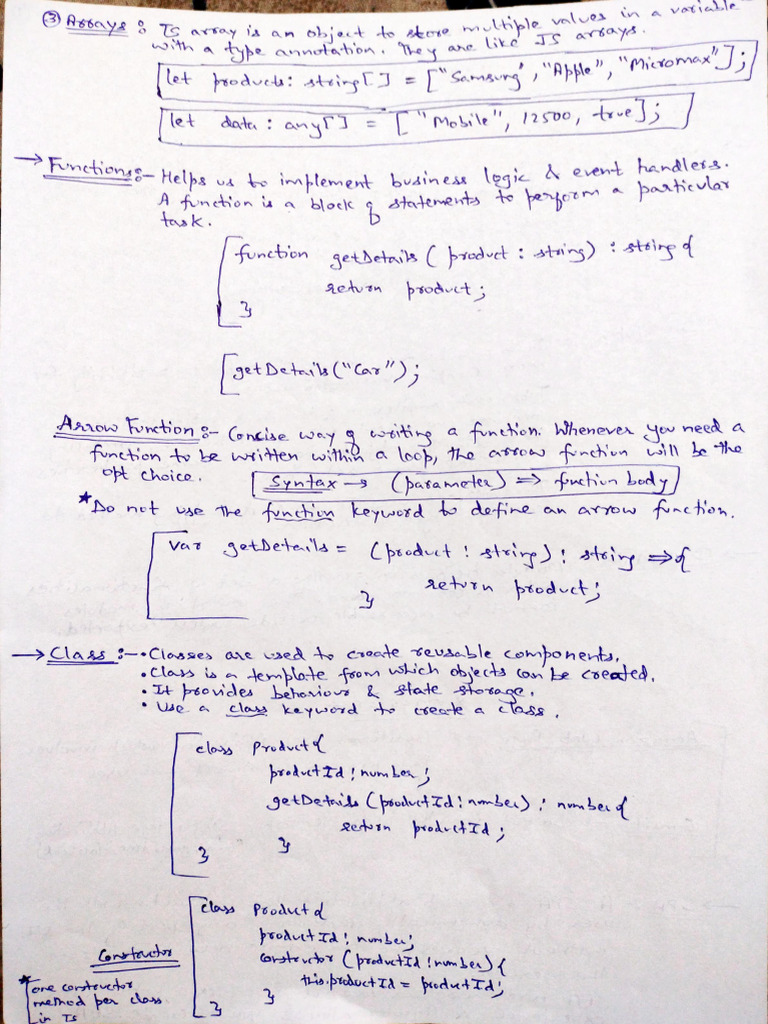 ③ Arrays : TS array is an object to store multiple values in a variable
with a type annotation. They are like JS arrays.
let products: string[] = ["Samsung", "Apple", "Micromax"];
let data : any[] = ["Mobile", 12500, true];
→ Functions:- Helps us to implement business logic & event handlers.
A function is a block of statements to perform a particular
task.
function getDetails ( product : string) : string {
return product;
}
getDetails("Car");
Arrow Function:- Concise way of writing a function. Whenever you need a
function to be written within a loop, the arrow function will be the
opt choice.
Syntax → (parameter) => function body
*Do not use the function keyword to define an arrow function.
var getDetails = (product : string) : string => {
return product;
}
→ Class :- • Classes are used to create reusable components.
• Class is a template from which objects can be created.
• It provides behaviour & state storage.
• Use a class keyword to create a class.
class Product {
productId : number;
getDetails (productId : number) : number {
return productId;
}
}
class Product {
productId : number;
Constructor
constructor (productId : number) {
this.productId = productId;
}
}
* one constructor
method per class
in TS